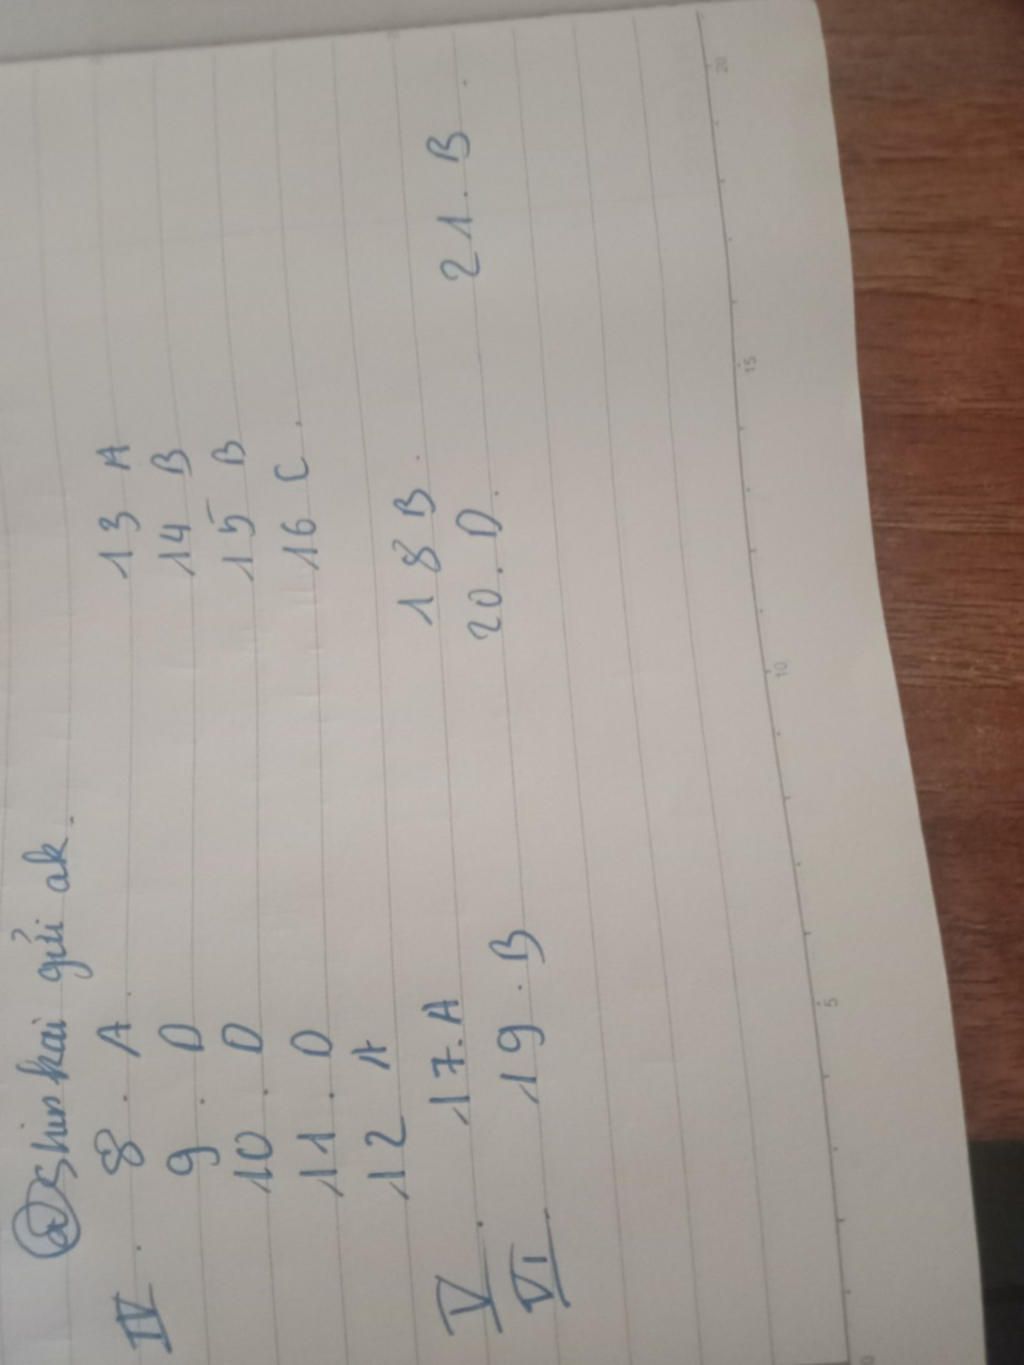 @shinkai gửi ak.
IV. 8. A. 13 A
9. D 14 B
10. D 15 B
11. D 16 C.
12 A
V. 17. A 18 B.
VI 19. B 20. D. 21. B.
5 10 15 20